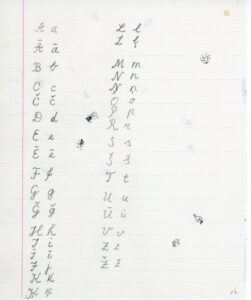 A a
Ā ā
B b
C c
Č č
D d
E e
Ē ē
F f
G g
Ģ ģ
H h
I i
Ī ī
J j
K k
Ķ ķ
L l
Ļ ļ
M m
N n
Ņ ņ
O o
P p
R r
S s
Š š
T t
U u
Ū ū
V v
Z z
Ž ž